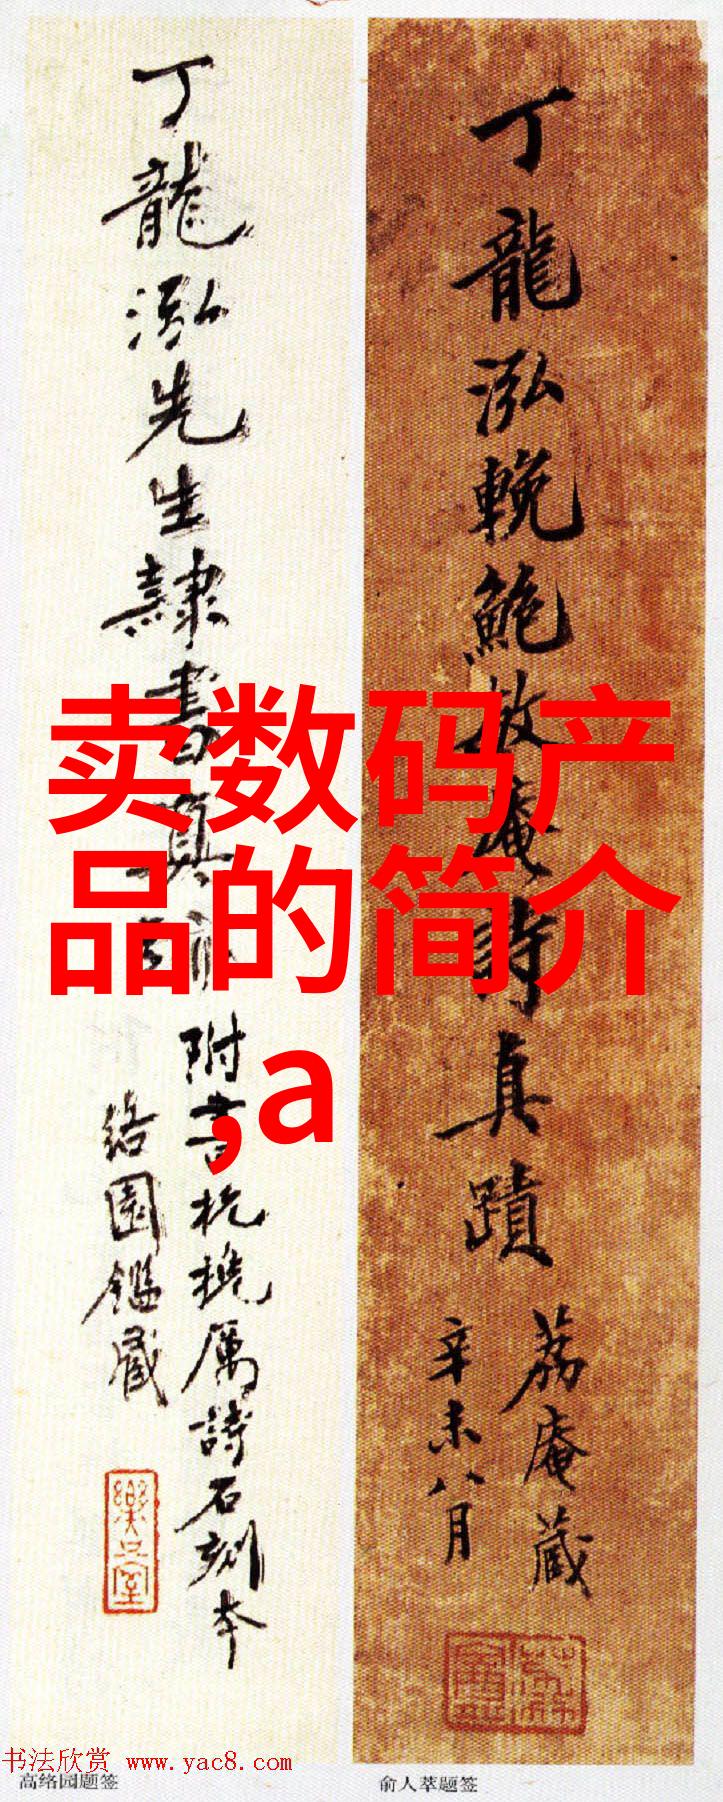 丁龍泓先生隸書真蹟
附書杭撓厲詩石刻本
絡園鑑藏
丁龍泓輓鮑敀庵詩真蹟
荔庵藏
辛未八月
卖数码产
品的简介
,a
书法欣赏 www.yac8.com
高络园题签
俞人萃题签